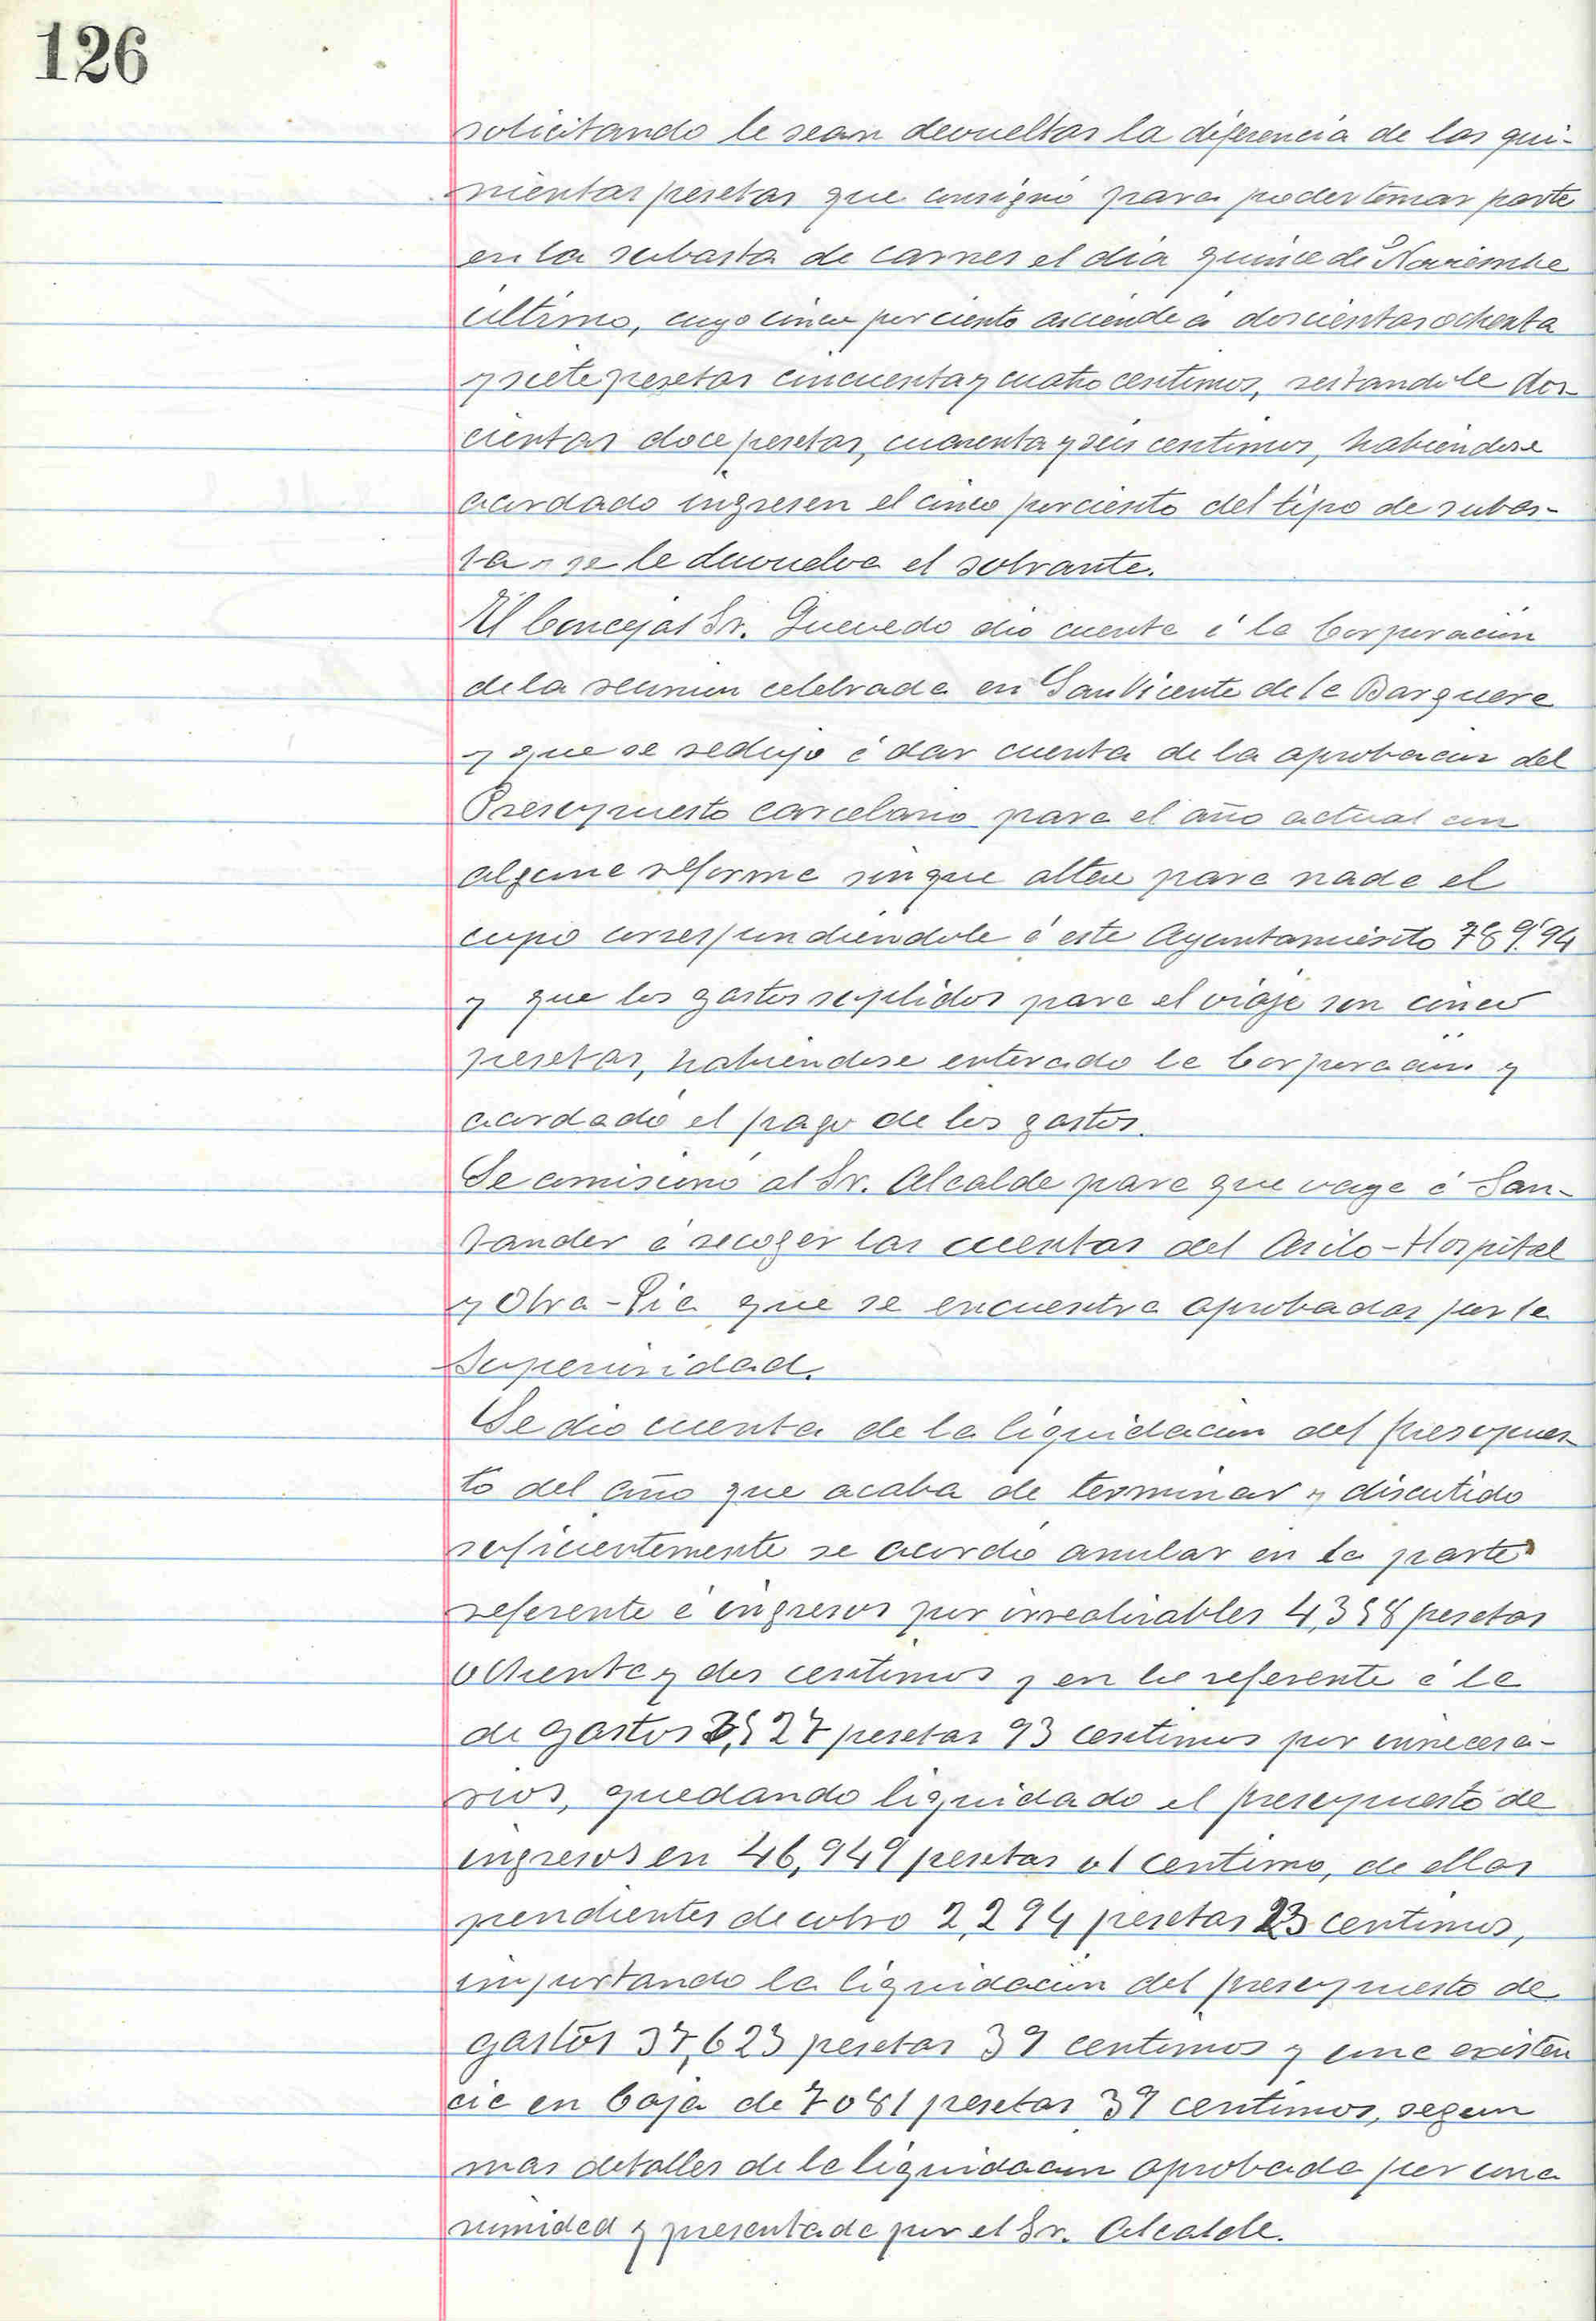 126
solicitando le sean devueltas la diferencia de las qui-
nientas pesetas que consignó para poder tomar parte
en la subasta de carnes el dia quince de Noviembre
último, cuyo cinco por ciento asciende á doscientas ochenta
y siete pesetas cincuenta y cuatro centimos, restandole dos-
cientas doce pesetas, cuarenta y seis centimos, habiendose
acordado ingresen el cinco por ciento del tipo de subas-
ta y se le devuelva el sobrante.
El Concejal Sr. Quevedo dio cuenta á la Corporación
de la reunion celebrada en San Vicente de la Barquera
y que se redujo á dar cuenta de la aprobacion del
Presupuesto carcelario para el año actual con
alguna reforma sin que altere para nada el
cupo correspondiendole á este Ayuntamiento 789'94
y que los gastos suplidos para el viaje son cinco
pesetas, habiendose enterado la Corporación y
acordado el pago de los gastos.
Se comisionó al Sr. Alcalde para que vaya á San-
tander á recoger las cuentas del Asilo-Hospital
y Obra-Pia que se encuentra aprobadas por la
Superioridad.
Se dio cuenta de la liquidacion del presupues-
to del año que acaba de terminar y discutido
suficientemente se acordó anular en la parte
referente á ingresos por irrealizables 4,358 pesetas
ochenta y dos centimos y en lo referente á la
de gastos 3,527 pesetas 93 centimos por innecesa-
rios, quedando liquidado el presupuesto de
ingresos en 46,949 pesetas 01 centimo, de ellas
pendientes de cobro 2,294 pesetas 23 centimos,
importando la liquidación del presupuesto de
gastos 37,623 pesetas 39 centimos y una existen
cia en Caja de 7081 pesetas 39 centimos, segun
mas detalles de la liquidacion aprobada por una
nimidad y presentada por el Sr. Alcalde.